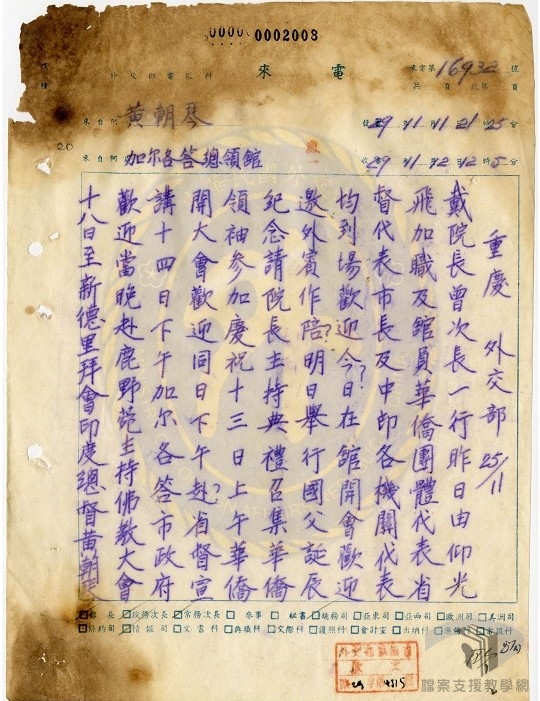 0002003
來電
外交部電報科
來字第16932號
共 頁 此係 頁
黃朝琴
29年11月11日21時25分
來自何 加尔各答總領館
29年11月12日12時5分
重慶 外交部 25/11
戴院長曾次長一行昨日由仰光
飛加職及館員華僑團體代表省
督代表市長及中印各機關代表
均到場歡迎今?日在館開會歡迎
邀外賓作陪?明日舉行國父誕辰
紀念請院長主持典禮召集華僑
領袖參加慶祝十三日上午華僑
開大會歡迎同日下午赴?省督宣
講十四日下午加尔各答市政府
歡迎當晚赴鹿野苑主持佛教大會
十八日至新德里拜會印度總督黃朝琴
部長 政務次長 常務次長 參事 秘書 總務司 亞東司 亞西司 歐洲司 美洲司
條約司 情報司 文書科 典職科 交際科 護照科 會計室 出納科 電報科
檔案支援教學網